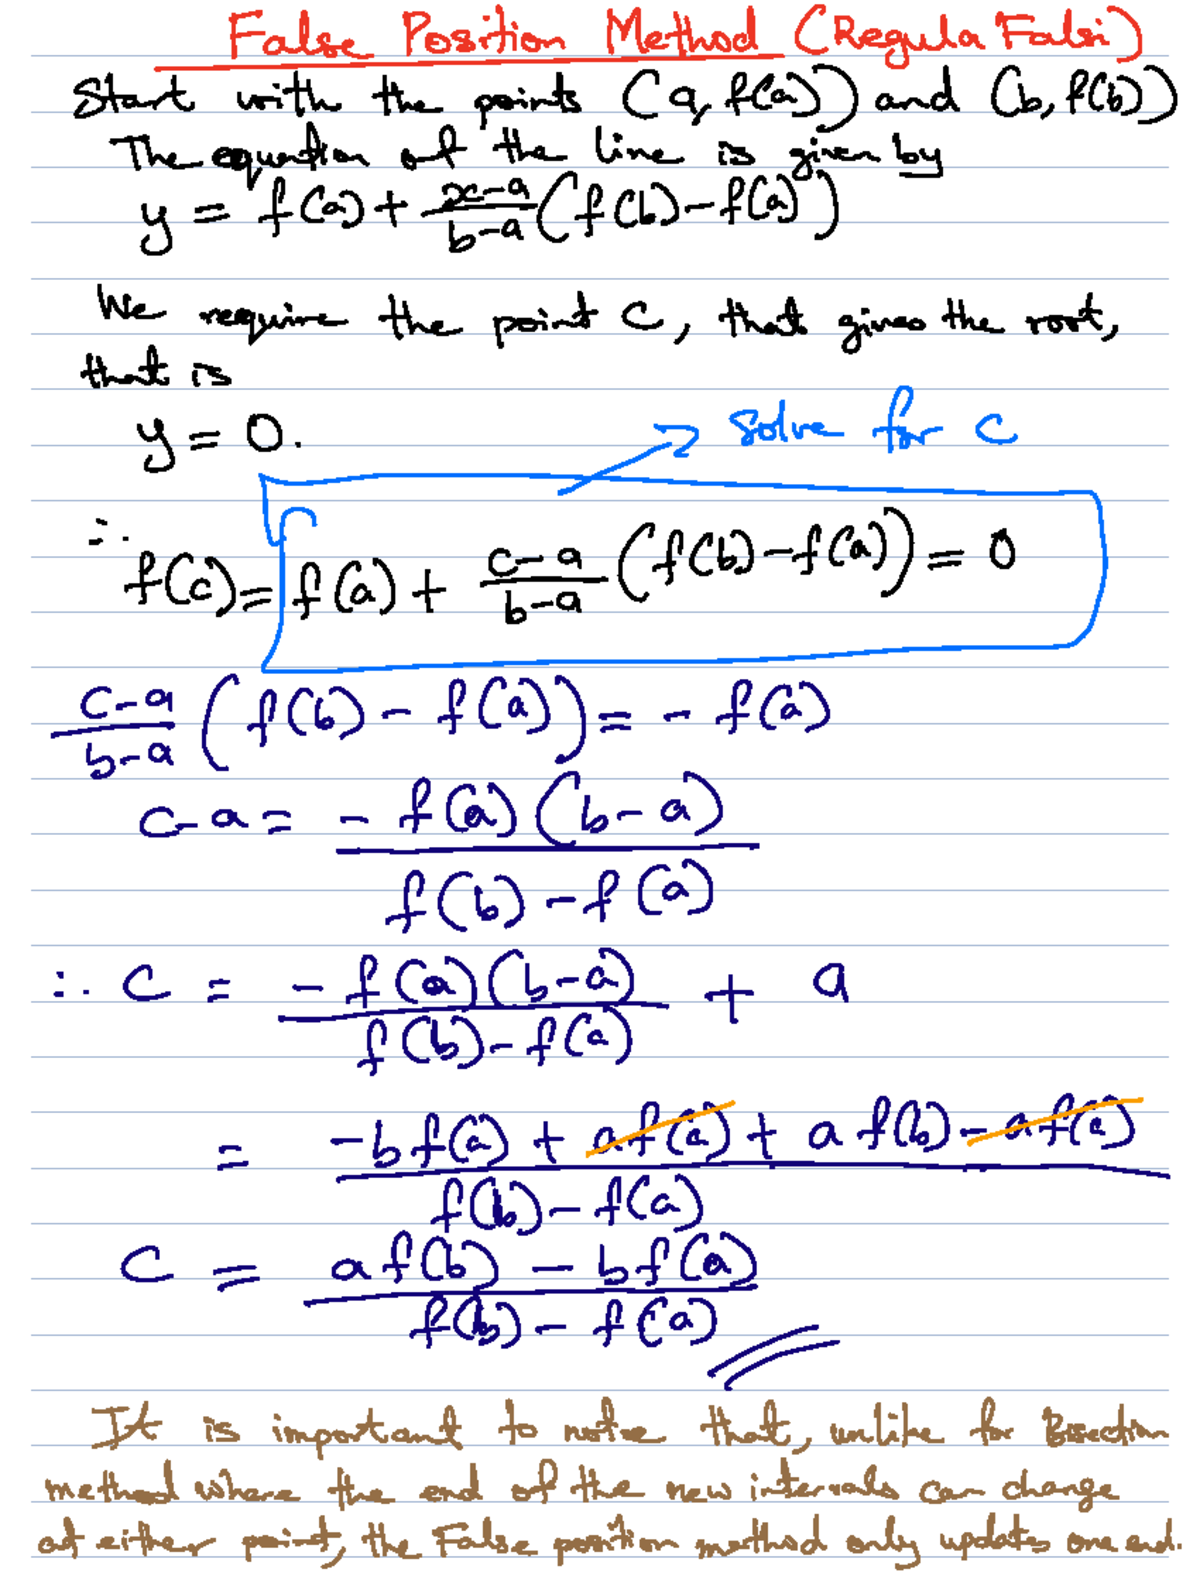 False Position Method (Regula Falsi)
Start with the points (a, f(a)) and (b, f(b))
The equation of the line is given by
y = f(a) + \frac{x-a}{b-a} (f(b)-f(a))
We require the point c, that gives the root,
that is
y = 0.
solve for c
∴ f(c) = f(a) + \frac{c-a}{b-a} (f(b)-f(a)) = 0
\frac{c-a}{b-a} (f(b) - f(a)) = - f(a)
c-a = \frac{- f(a)(b-a)}{f(b)-f(a)}
∴ c = \frac{-f(a)(b-a)}{f(b)-f(a)} + a
= \frac{-bf(a) + af(a) + af(b) - af(a)}{f(b)-f(a)}
c = \frac{af(b) - bf(a)}{f(b) - f(a)}
It is important to notice that, unlike for Bisection
method where the end of the new intervals can change
at either point, the False position method only updates one end.